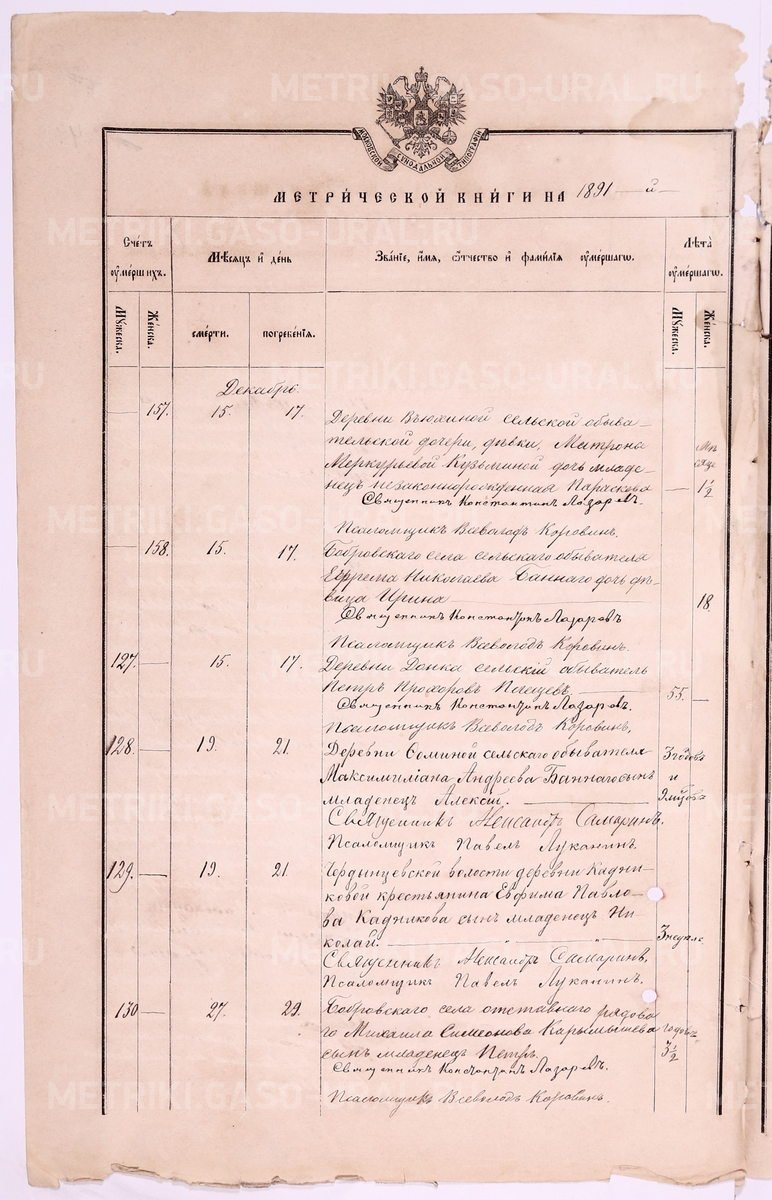 МОСКОВСКОЙ СѴНОДАЛЬНОЙ ТИПОГРАФІИ
МЕТРИ́ЧЕСКОЙ КНИ́ГИ НА 1891 — й —
Сче́тъ ᲂу҆ме́ршихъ.
Мѣ́сяцъ и҆ де́нь
Зва́ніе, и҆́мя, ѻ҆́тчество и҆ фами́лія ᲂу҆ме́ршагѡ.
Лѣ́та ᲂу҆ме́ршагѡ.
Мꙋ́жеска.
Же́нска.
сме́рти.
погребе́нія.
Мꙋ́жеска.
Же́нска.
Декабрь.
— 157. 15. 17. Деревни Вьюхиной сельской обыва-
тельской дочери, дѣвки, Матрона
Меркурьевой Кузьминой дочь младе- Мѣ
нецъ незаконнорожденная Параскова — сяца 1½
Священникъ Константинъ Лазаревъ.
Псаломщикъ Всеволодъ Коровинъ.
— 158. 15. 17. Бобровскаго села сельскаго обывателя
Ефрема Николаева Баннаго дочь дѣ-
вица Ирина — 18.
Священникъ Константинъ Лазаревъ
Псаломщикъ Всеволодъ Коровинъ.
127. — 15. 17. Деревни Донка сельскій обыватель
Петръ Прохоровъ — 55. —
Священникъ Константинъ Лазаревъ.
Псаломщикъ Всеволодъ Коровинъ.
128. — 19. 21. Деревни Фоминой сельскаго обывателя 3 годовъ
Максимиліана Андреева Баннаго сынъ и
младенецъ Алексій. —
Священникъ Александръ Самаринъ,
Псаломщикъ Павелъ Луканинъ.
129. — 19. 21. Чердынцевской волости деревни Каджи-
ковой крестьянина Евфима Павло-
ва Каджикова сынъ младенецъ Ни-
колай. — 3 недѣле
Священникъ Александръ Самаринъ,
Псаломщикъ Павелъ Луканинъ.
130 — 27. 29. Бобровскаго села отставнаго рядова
го Михаила Симеонова Карымышева годовъ
сынъ младенецъ Петръ. 3½
Священникъ Константинъ Лазаревъ.
Псаломщикъ Всеволодъ Коровинъ.
METRIKI.GASO-URAL.RU